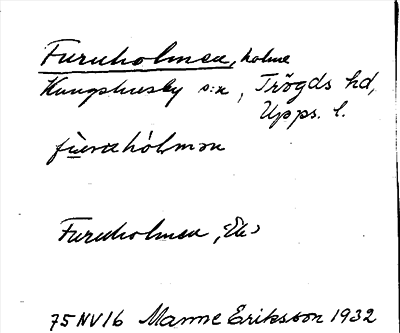 Furuholmen, holme
Kungshusby s:n, Trögds hd,
Upps. l.
fùruhólmən
Furuholmen, Ek
75 NV 16 Manne Eriksson 1932